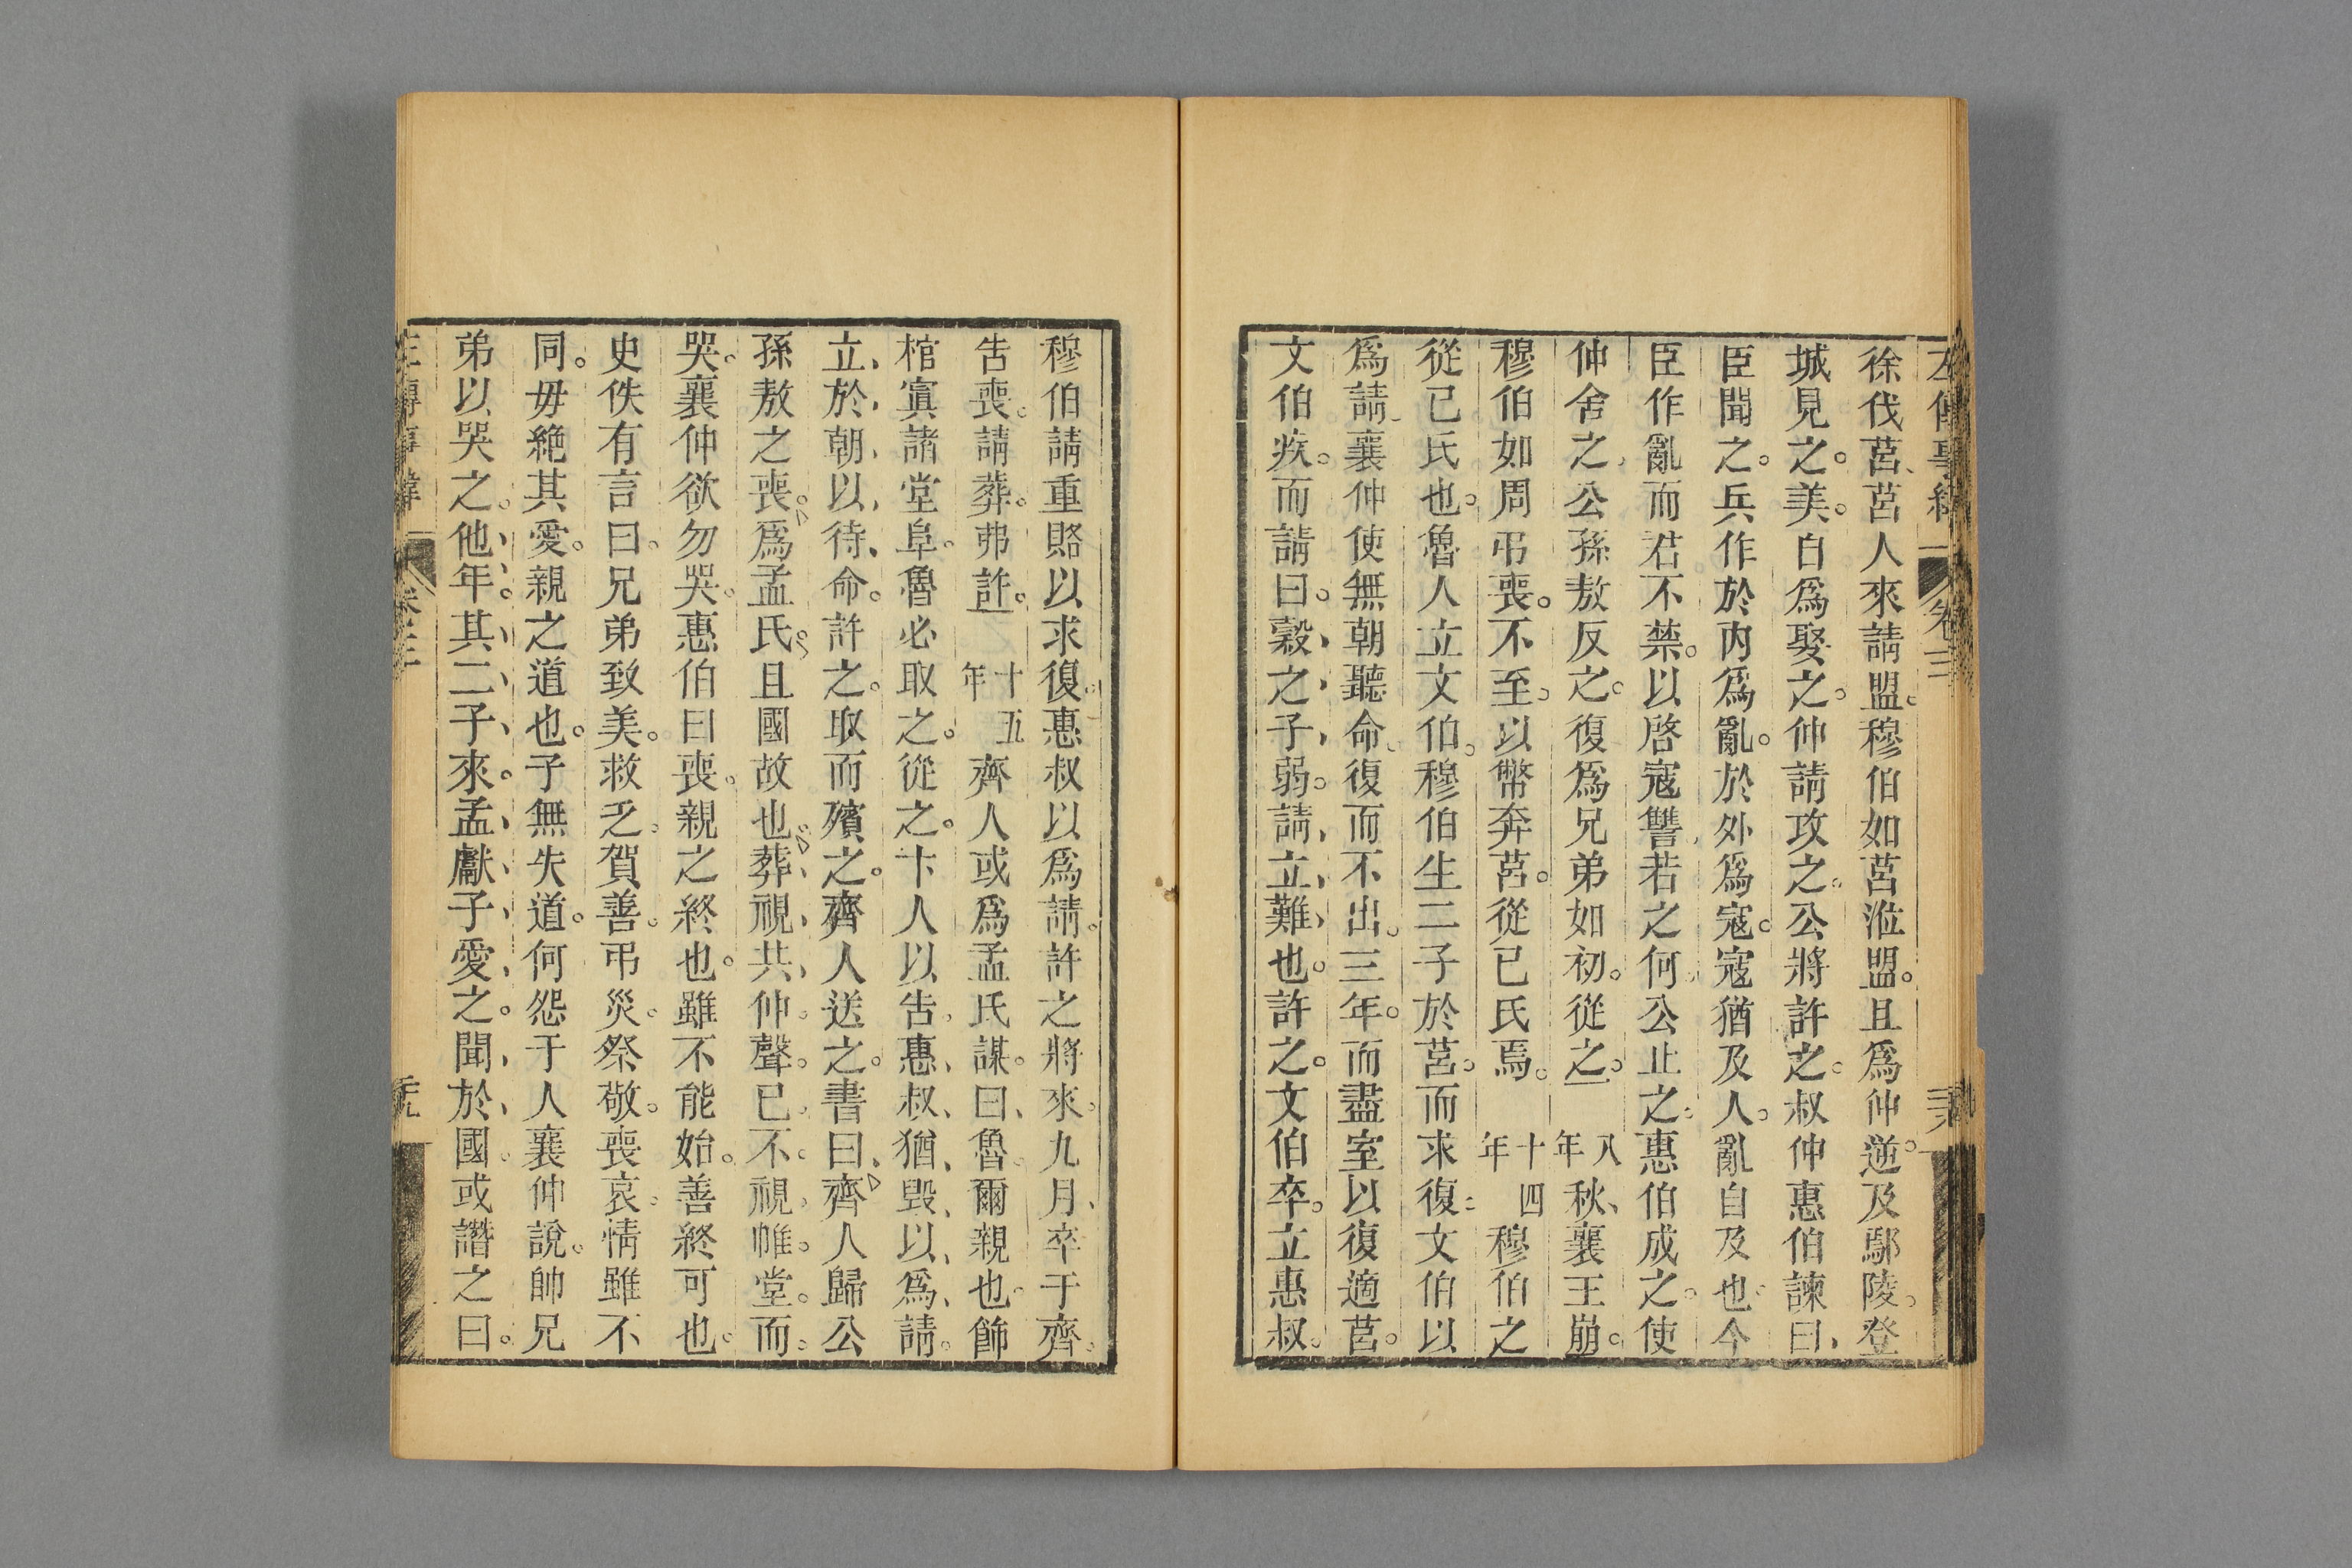 徐伐莒、莒人來請盟。穆伯如莒涖盟。且爲仲逆。及鄢陵。登
城見之。美。自爲娶之。仲請攻之。公將許之。叔仲惠伯諫曰、
臣聞之。兵作於內爲亂。於外爲寇。寇猶及人。亂自及也。今
臣作亂而君不禁。以啓寇讐、若之何。公止之。惠伯成之。使
仲舍之、公孫敖反之。復爲兄弟如初。從之。八年秋、襄王崩。
穆伯如周弔喪。不至。以幣奔莒。從己氏焉。十四年穆伯之
從己氏也。魯人立文伯。穆伯生二子於莒。而求復。文伯以
爲請。襄仲使無朝聽命。復而不出。三年。而盡室以復適莒。
文伯疾。而請曰。穀之子弱。請立難也。許之。文伯卒。立惠叔。
穆伯請重賂以求復。惠叔以爲請。許之將來。九月、卒于齊。
告喪。請葬。弗許。十五年齊人或爲孟氏謀。曰、魯爾親也。飾
棺寘諸堂阜。魯必取之。從之。卞人以告、惠叔猶毀以爲請。
立於朝以待命。許之。取而殯之。齊人送之。書曰、齊人歸公
孫敖之喪。爲孟氏。且國故也。葬視共仲。聲己不視。帷堂而。
哭。襄仲欲勿哭。惠伯曰喪。親之終也。雖不能始。善終可也。
史佚有言曰。兄弟致美。救乏。賀善。弔災。祭敬。喪哀。情雖不
同。毋絕其愛。親之道也。子無失道。何怨于人襄仲說。帥兄
弟以哭之。他年。其二子來。孟獻子愛之。聞於國。或譖之曰。